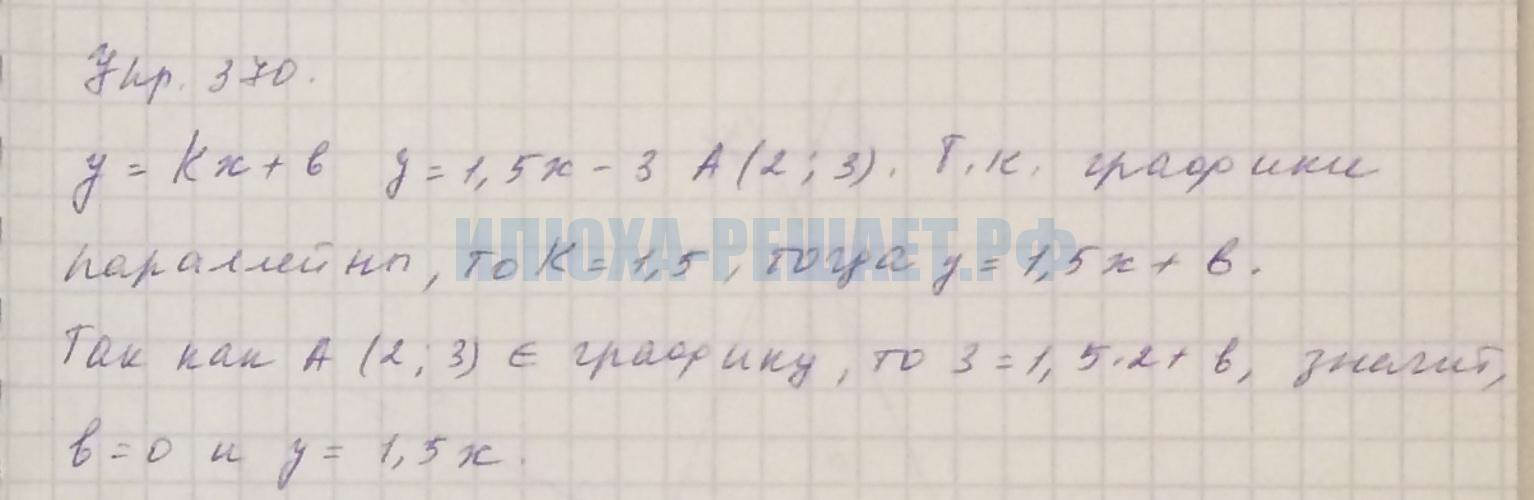 Упр. 370.
y = kx + b y = 1,5x - 3 A (2; 3). Т.к. графики
ИЛЮХА-РЕШАЕТ.РФ
параллейны, то K = 1,5, тогда y = 1,5x + b.
Так как A (2; 3) ∈ графику, то 3 = 1,5·2 + b, значит,
b = 0 и y = 1,5x.